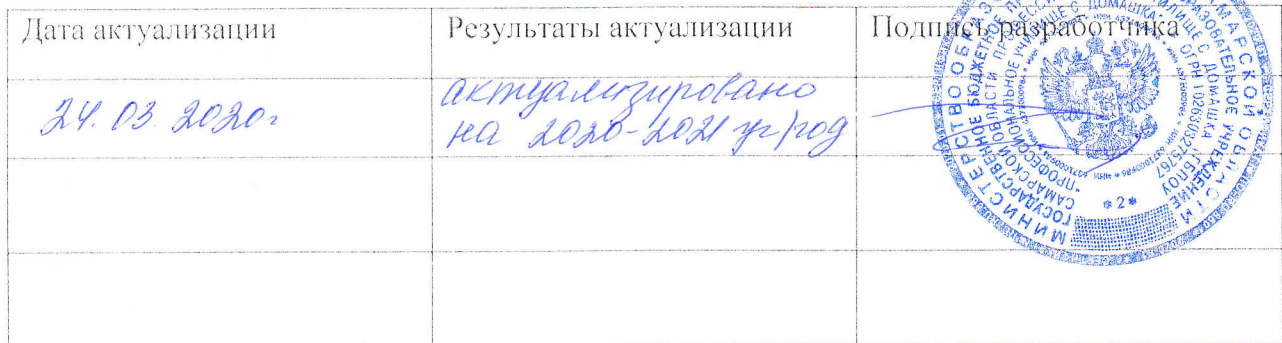 Дата актуализации
Результаты актуализации
Подпись разработчика
24. 03. 2020г
актуализировано
на 2020-2021 уг/год
МИНИСТЕРСТВО ОБРАЗО
МАРСКОЙ ОБЛАСТИ
ГОСУДАРСТВЕННОЕ БЮДЖЕТНОЕ ПРО
РАЗОВАТЕЛЬНОЕ УЧРЕЖДЕНИЕ
САМАРСКОЙ ОБЛАСТИ
"ПРОФЕССИОНАЛЬНОЕ УЧИЛИЩЕ С ДОМАШКА"
ОГРН 1026303275767
*2*